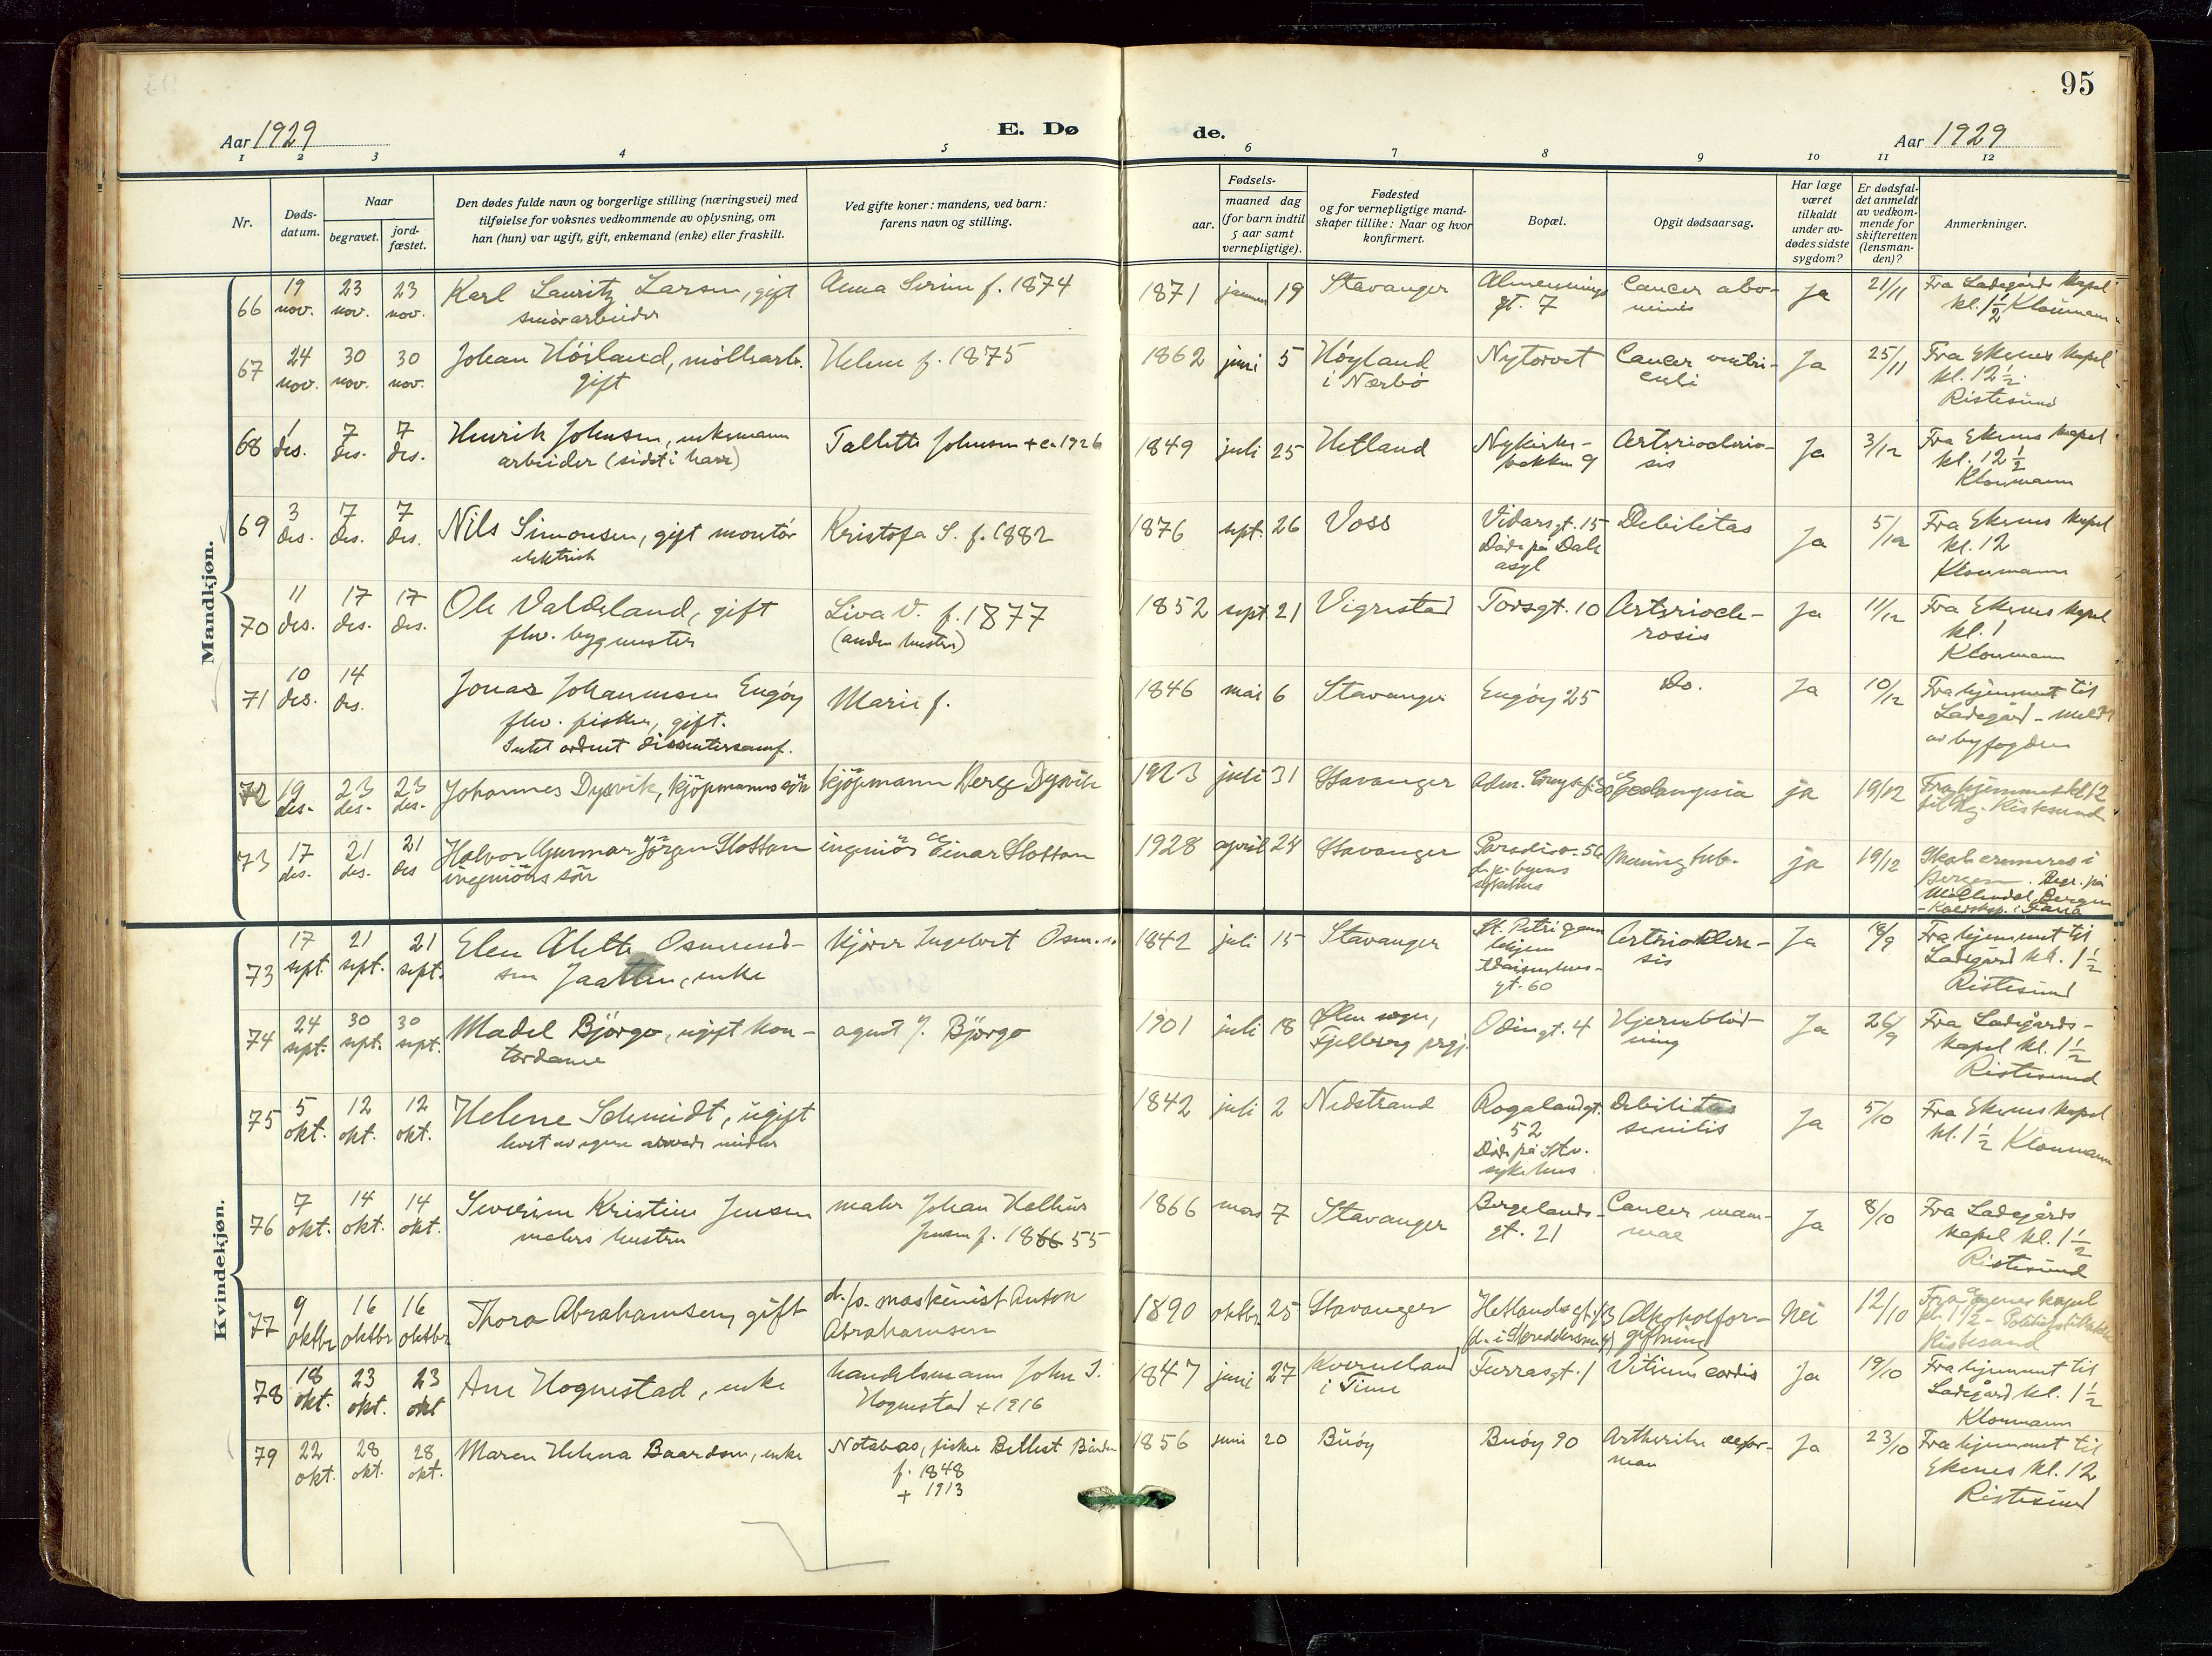 95
Aar 1929
E. Døde.
Aar 1929
1 2 3 4 5 6 7 8 9 10 11 12
Nr.
Døds-
datum.
Naar
begravet.
jord-
fæstet.
Den dødes fulde navn og borgerlige stilling (næringsvei) med
tilføielse for voksnes vedkommende av oplysning, om
han (hun) var ugift, gift, enkemand (enke) eller fraskilt.
Ved gifte koner: mandens, ved barn:
farens navn og stilling.
Fødsels-
aar.
maaned dag
(for barn indtil
5 aar samt
vernepligtige).
Fødested
og for vernepligtige mand-
skaper tillike: Naar og hvor
konfirmert.
Bopæl.
Opgit dødsaarsag.
Har læge
været
tilkaldt
under av-
dødes sidste
sygdom?
Er dødsfal-
det anmeldt
av vedkom-
mende for
skifteretten
(lensman-
den)?
Anmerkninger.
Mandkjøn.
66 19 nov. 23 nov. 23 nov.
Karl Lauritz Larsen, gift
Anna Serine f. 1874
1871 januar 19 Stavanger
Almennings
gt. 7
Cancer abo-
minis
Ja 21/11
Fra Ladegårds kapel
kl. 1½ Kloumann
67 24 nov. 30 nov. 30 nov.
Johan Höiland, möllearb.
gift
Helene f. 1875
1862 juni 5
Höyland
i Nærbö
Nytorvet
Cancer ventri-
culi
Ja 25/11
Fra Ekenes kapel
kl. 12½
Ristesund
68 1 des. 7 des. 7 des.
Henrik Johnsen, enkemann
arbeider (sidst i havn)
Tallette Johnsen + ca. 1926
1849 juli 25 Hetland
Nykirke-
bakken 9
Arteriosclero-
sis
Ja 3/12
Fra Ekenes kapel
kl. 12½
Kloumann
69 3 des. 7 des. 7 des.
Nils Simonsen, gift montör
elektrisk
Kristofa S. f. 1882
1876 sept. 26 Voss
Vidarsgt. 15
Död på Dale
asyl
Debilitas
Ja 5/12
Fra Ekenes kapel
kl. 12
Kloumann
70 11 des. 17 des. 17 des.
Ole Valdeland, gift
fhv. bygmester
Liva V. f. 1877
(anden hustru)
1852 sept. 21 Vigrestad Torsgt. 10
Arteriocle-
rosis
Ja 11/12
Fra Ekenes kapel
kl. 1
Kloumann
71 10 des. 14 des.
Jonas Johannesen Engöy
fhv. fisker, gift.
Intet ordnet dissentersamf.
Marie f.
1846 mai 6 Stavanger Engöy 25 do. Ja 10/12
Fra hjemmet til
Ladegård - meldt
av byfogden
72 19 des. 23 des. 23 des.
Johannes Dysvik, kjöpmanns sön
kjöpmann Dysvik
1923 juli 31 Stavanger ja 19/12
Fra hjemmet kl 12
73 17 des. 21 des. 21 des
Halvor Gunnar Jörgen Slottem
ingeniörs sön
ingeniör Einar Slottem
1928 april 24 Stavanger
Paradisv. 56
d. p. byens
sykehus
Mening. tub. ja 19/12
Skal cremeres i
Bergen. Begr. på
Kvindekjøn.
73 17 sept. 21 sept. 21 sept.
Elen Alette Osmund-
sen Jaatten, enke
kjörer Ingebret
1842 juli 15 Stavanger
St. Petri gam
lehjem
Vaisenhus-
gt. 60
Arterioscler-
sis
Ja 18/9
Fra hjemmet til
Ladegård kl. 1½
Ristesund
74 24 sept. 30 sept. 30 sept.
Madel Björgo, ugift kon-
tordame
agent J. Björgo
1901 juli 18
Ølen sogn,
Fjelberg prgj.
Odinsgt. 4
Hjerneblöd-
ning
Ja 26/9
Fra Ladegårds-
kapel kl. 1½
Ristesund
75 5 okt. 12 okt. 12 okt.
Helene Schmidt, ugift
levet av egne midler
1842 juli 2 Nedstrand
Rogalandgt.
52
Död på Stv.
sykehus
Debilitas
senilis
Ja 5/10
Fra Ekenes kapel
kl. 1½ Kloumann
76 7 okt. 14 okt. 14 okt.
Severine Kristine Jensen
malers hustru
maler Johan
Jensen f. 1866 55
1866 mars 7 Stavanger
Bergelands-
gt. 21
Cancer mam-
mae
Ja 8/10
Fra Ladegårds
kapel kl. 1½
Ristesund
77 9 oktbr 16 oktbr 16 oktbr
Thora Abrahamsen, gift
d./s. maskinist Anton
Abrahamsen
1890 oktbr. 25 Stavanger
Hetlandsgt.
Alkoholfor-
giftning
Nei 12/10
kapel
kl. 1½ -
Ristesund
78 18 okt. 23 okt. 23 okt
Ane Hognestad, enke
handelsmann John T.
Hognestad + 1916
1847 juni 27
Kverneland
i Time
Furrasgt. 1 Vitium cordis Ja 19/10
Fra hjemmet til
Ladegård kl. 1½
Kloumann
79 22 okt. 28 okt. 28 okt.
Maren Helena Baardsen, enke
Notabas, fisker
f. 1848
+ 1913
1856 juni 20 Buöy Buöy 90
Artheritis defor-
man
Ja 23/10
Fra hjemmet til
Ekenes kl. 12
Ristesund